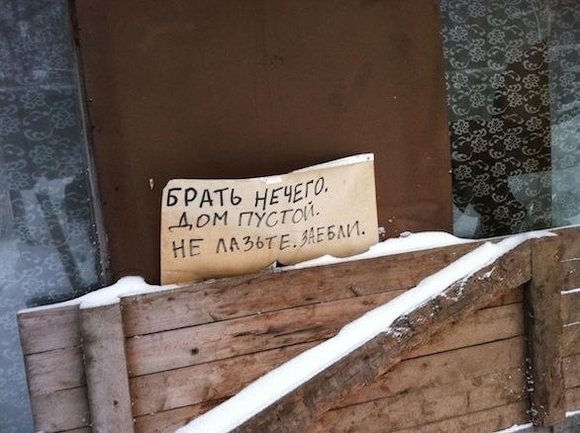 БРАТЬ НЕЧЕГО.
ДОМ ПУСТОЙ.
НЕ ЛАЗЬТЕ. ЗАЕБЛИ.